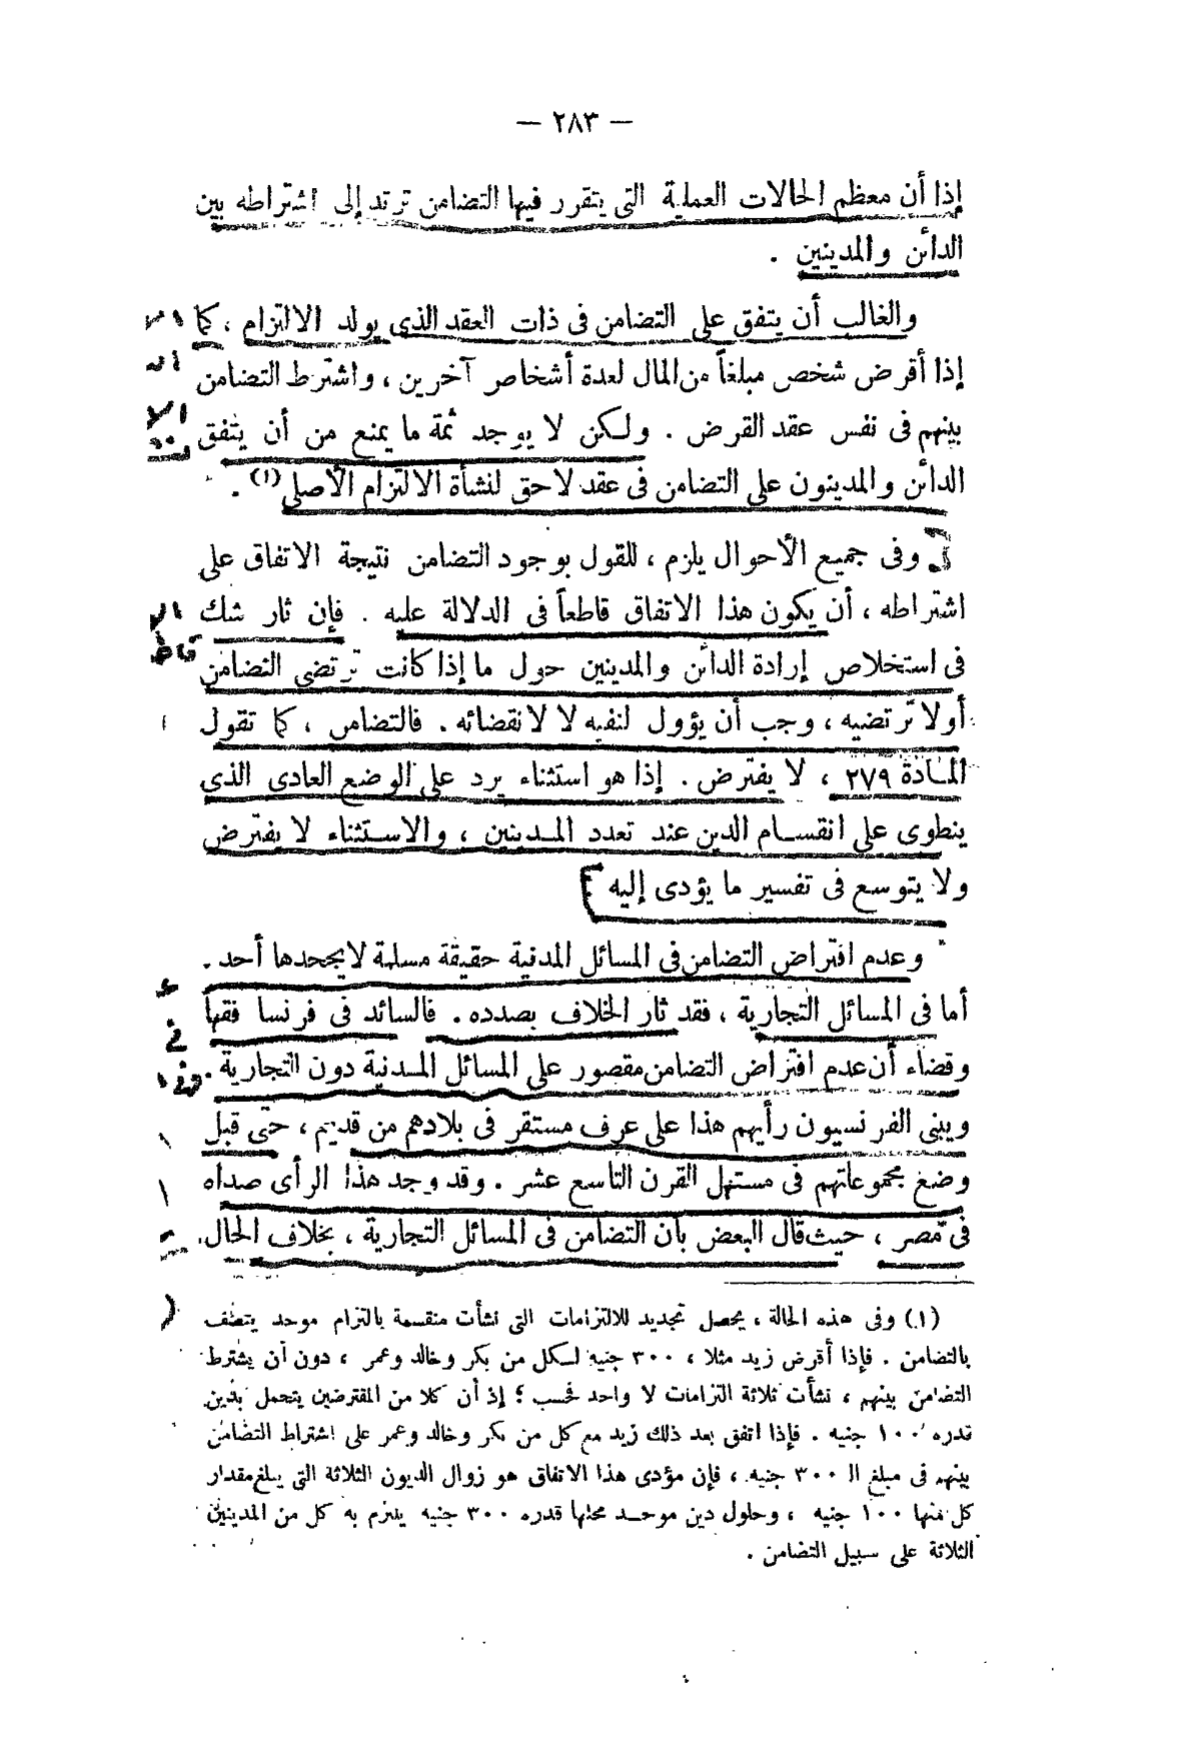 — ٢٨٣ —
إذا أن معظم الحالات العملية التى يتقرر فيها التضامن ترتد إلى اشتراطه بين
الدائن والمدينين .
والغالب أن يتفق على التضامن فى ذات العقد الذى يولد الالتزام ، كما
إذا أقرض شخص مبلغاً من المال لعدة أشخاص آخرين ، واشترط التضامن
بينهم فى نفس عقد القرض . ولكن لا يوجد ثمة ما يمنع من أن يتفق
الدائن والمدينون على التضامن فى عقد لاحق لنشأة الالتزام الأصلى (١) .
وفى جميع الأحوال يلزم ، للقول بوجود التضامن نتيجة الاتفاق على
اشتراطه ، أن يكون هذا الاتفاق قاطعاً فى الدلالة عليه . فإن ثار شك
فى استخلاص إرادة الدائن والمدينين حول ما إذا كانت ترتضى التضامن
أولا ترتضيه ، وجب أن يؤول لنفيه لا لانقضائه . فالتضامن ، كما تقول
المادة ٢٧٩ ، لا يفترض . إذا هو استثناء يرد على الوضع العادى الذى
ينطوى على انقسام الدين عند تعدد المدينين ، والاستثناء لا يفترض
ولا يتوسع فى تفسير ما يؤدى إليه
وعدم افتراض التضامن فى المسائل المدنية حقيقة مسلمة لا يجحدها أحد .
أما فى المسائل التجارية ، فقد ثار الخلاف بصدده . فالسائد فى فرنسا فقهاً
وقضاء أن عدم افتراض التضامن مقصور على المسائل المدنية دون التجارية .
ويبنى الفرنسيون رأيهم هذا على عرف مستقر فى بلادهم من قديم ، حتى قبل
وضع مجموعاتهم فى مستهل القرن التاسع عشر . وقد وجد هذا الرأى صداه
فى مصر ، حيث قال البعض بأن التضامن فى المسائل التجارية ، بخلاف الحال
(١) وفى هذه الحالة ، يحصل تجديد للالتزامات التى نشأت منقسمة بالتزام موحد يتصف
بالتضامن . فإذا أقرض زيد مثلا ، ٣٠٠ جنيه لسكل من بكر وخالد وعمر ، دون أن يشترط
التضامن بينهم ، نشأت ثلاثة التزامات لا واحد فحسب ؛ إذ أن كلا من المقترضين يتحمل بدين
قدره ١٠٠ جنيه . فإذا اتفق بعد ذلك زيد مع كل من بكر وخالد وعمر على اشتراط التضامن
بينهم فى مبلغ الـ ٣٠٠ جنيه ، فإن مؤدى هذا الاتفاق هو زوال الديون الثلاثة التى يبلغ مقدار
كل منها ١٠٠ جنيه ، وحلول دين موحد محلها قدره ٣٠٠ جنيه يلتزم به كل من المدينين
الثلاثة على سبيل التضامن .